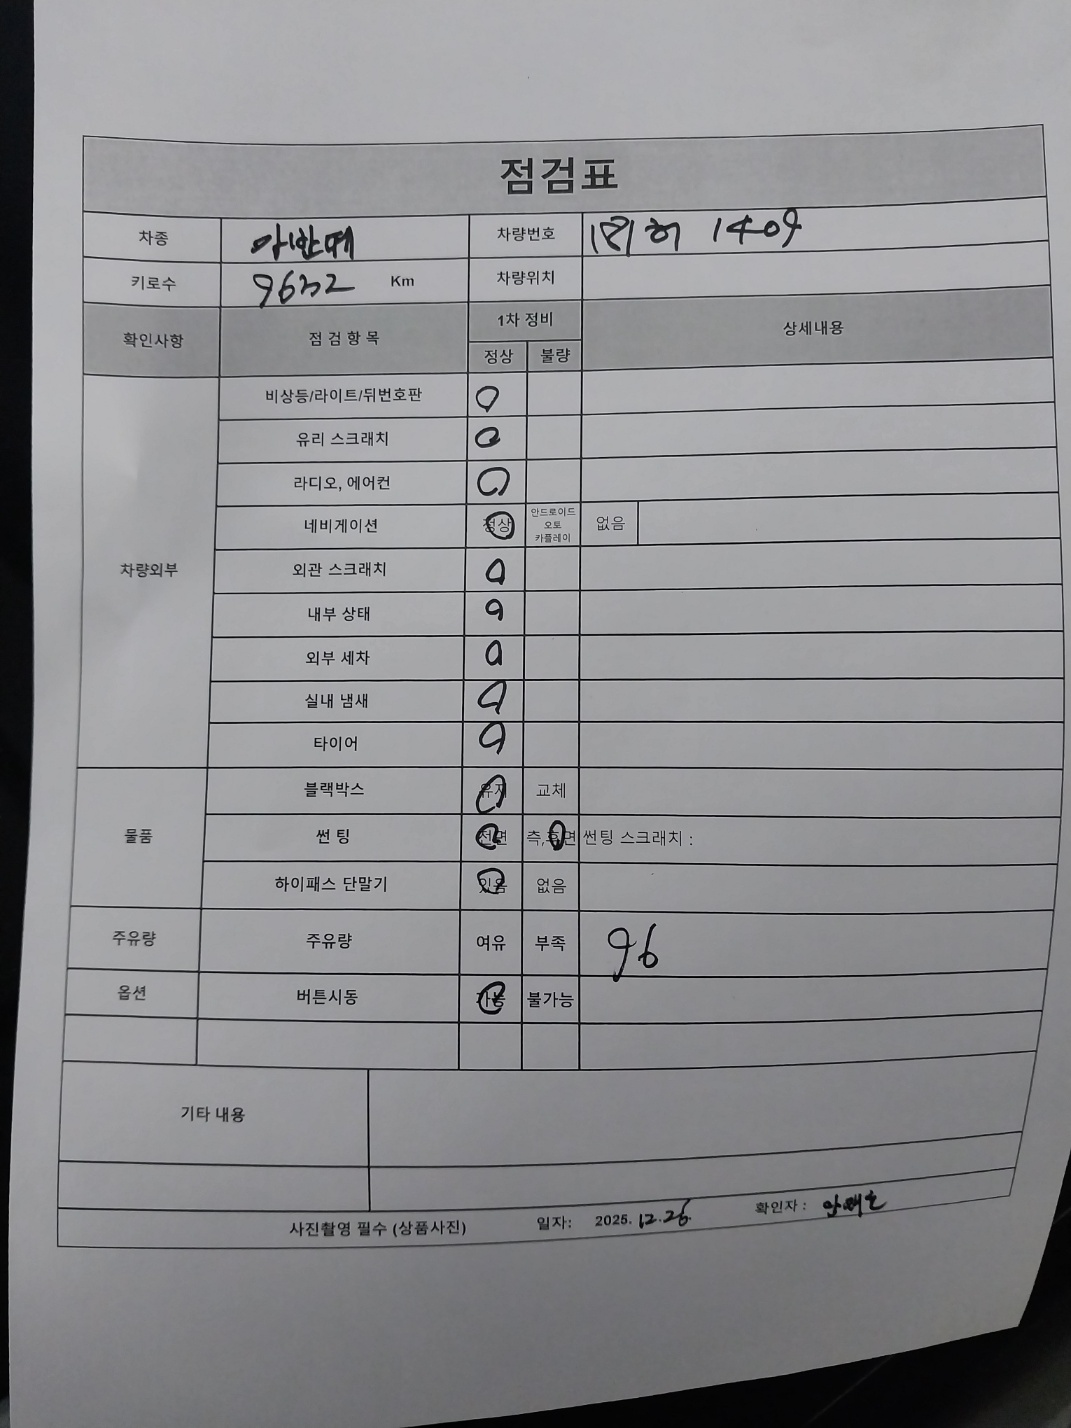 점검표
차종 아반떼 차량번호 허 1409
키로수 9632 Km 차량위치
확인사항 점 검 항 목 1차 정비 상세내용
정상 불량
차량외부
비상등/라이트/뒤번호판 O
유리 스크래치 O
라디오, 에어컨 O
네비게이션 정상 O 안드로이드 오토 카플레이 없음
외관 스크래치 O
내부 상태 O
외부 세차 O
실내 냄새 O
타이어 O
물품
블랙박스 유지 O 교체
썬 팅 전면 O 측,후면 O 썬팅 스크래치 :
하이패스 단말기 있음 O 없음
주유량 주유량 여유 부족 96
옵션 버튼시동 가능 O 불가능
기타 내용
사진촬영 필수 (상품사진) 일자: 2025. 12.26. 확인자 :